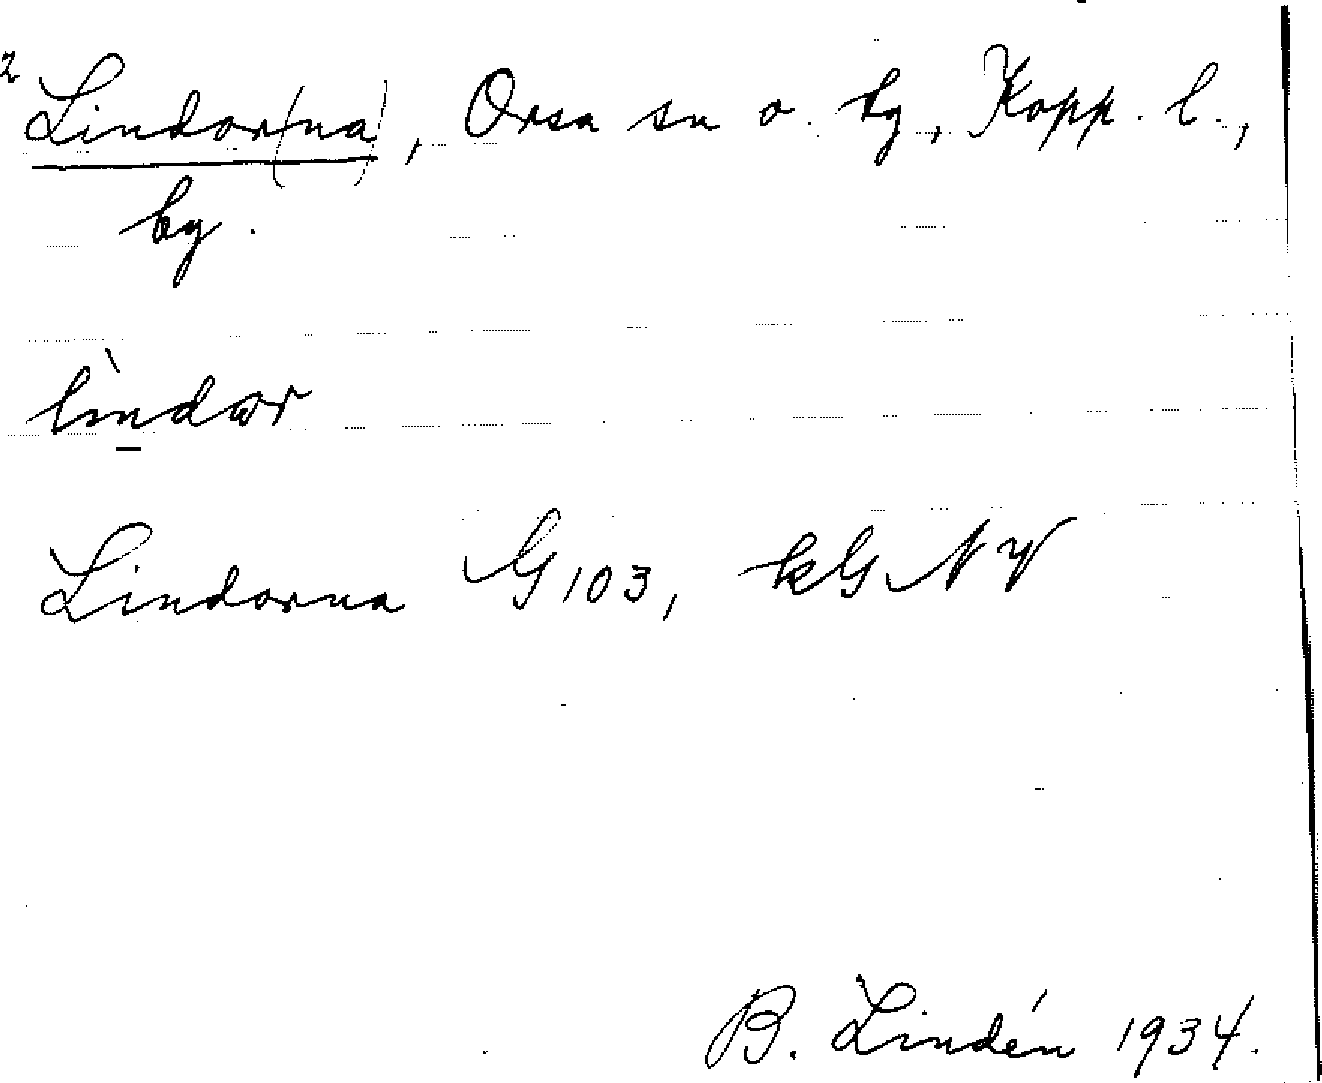 2 Lindor(na), Orsa sn o. tg, Kopp. l.,
by.
lìndωr
Lindorna G 103, kG NV
B. Lindén 1934.